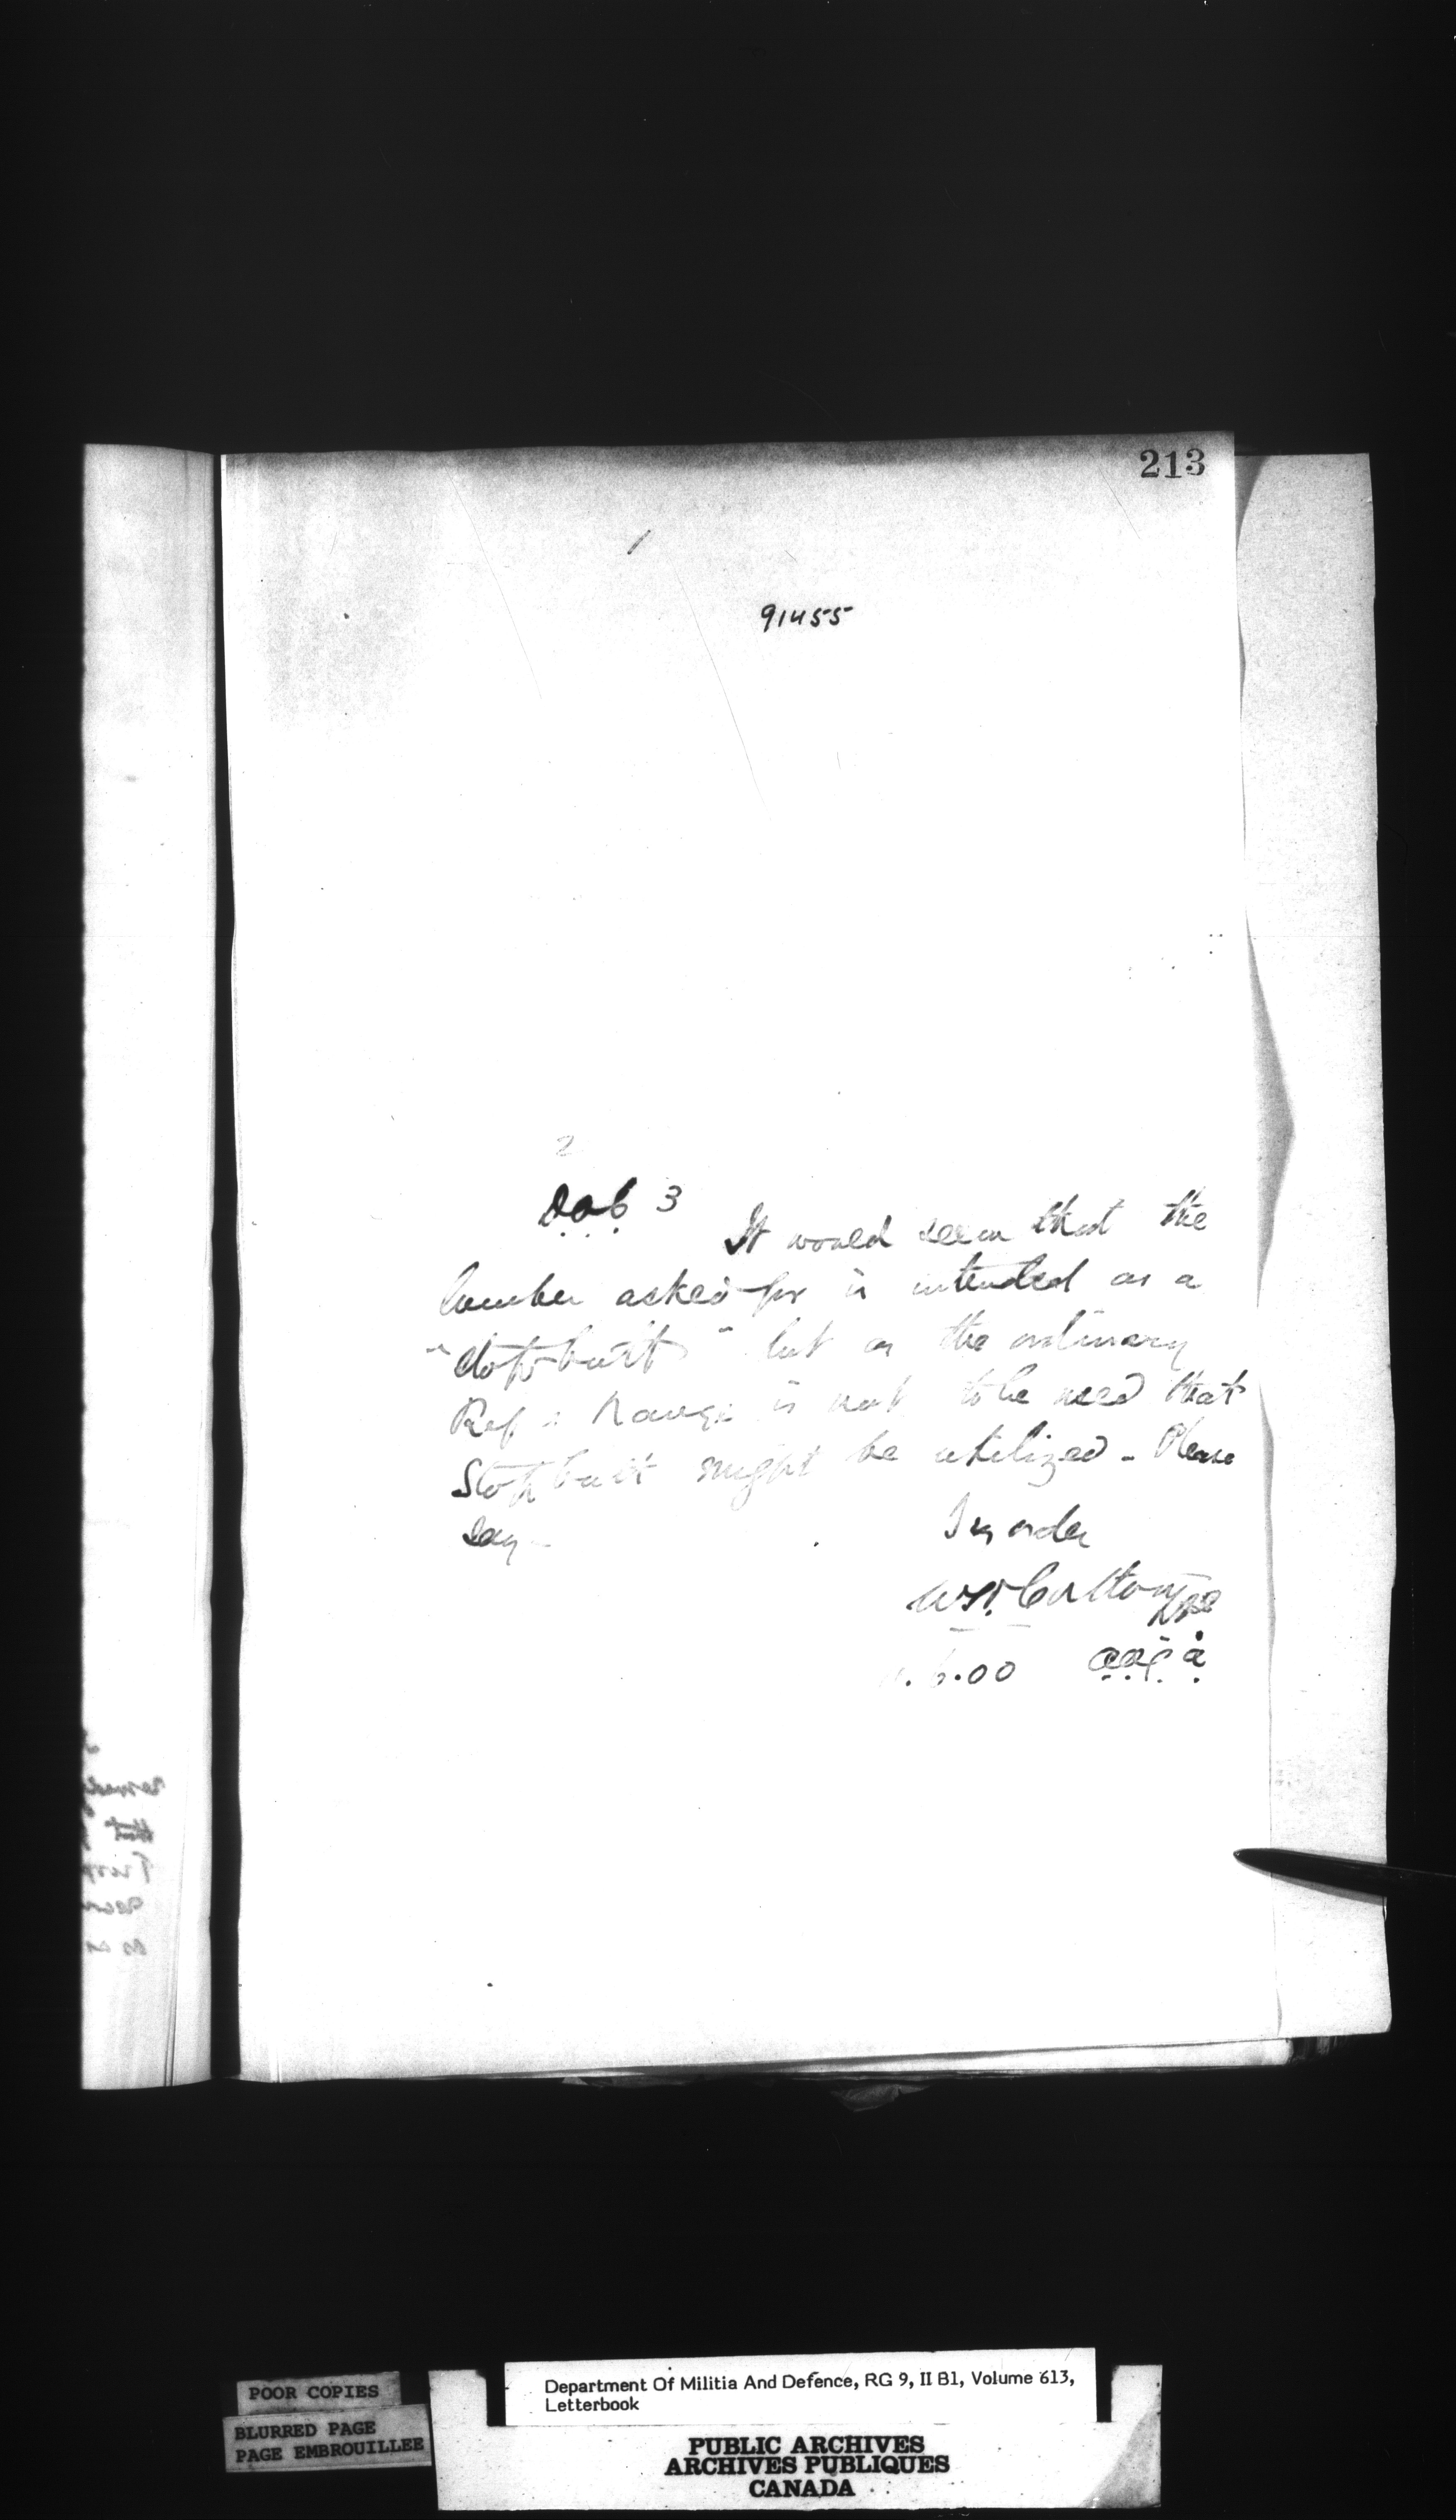 213
91455
2
D.O.C. 3 It would seem that the
lumber asked for is intended as a
"Stop butt" but as the ordinary
Range is not to be used that
Stop butt might be utilized - Please
say -
By order
6.00
Department Of Militia And Defence, RG 9, II B1, Volume 613,
Letterbook
POOR COPIES
BLURRED PAGE
PAGE EMBROUILLEE
PUBLIC ARCHIVES
ARCHIVES PUBLIQUES
CANADA